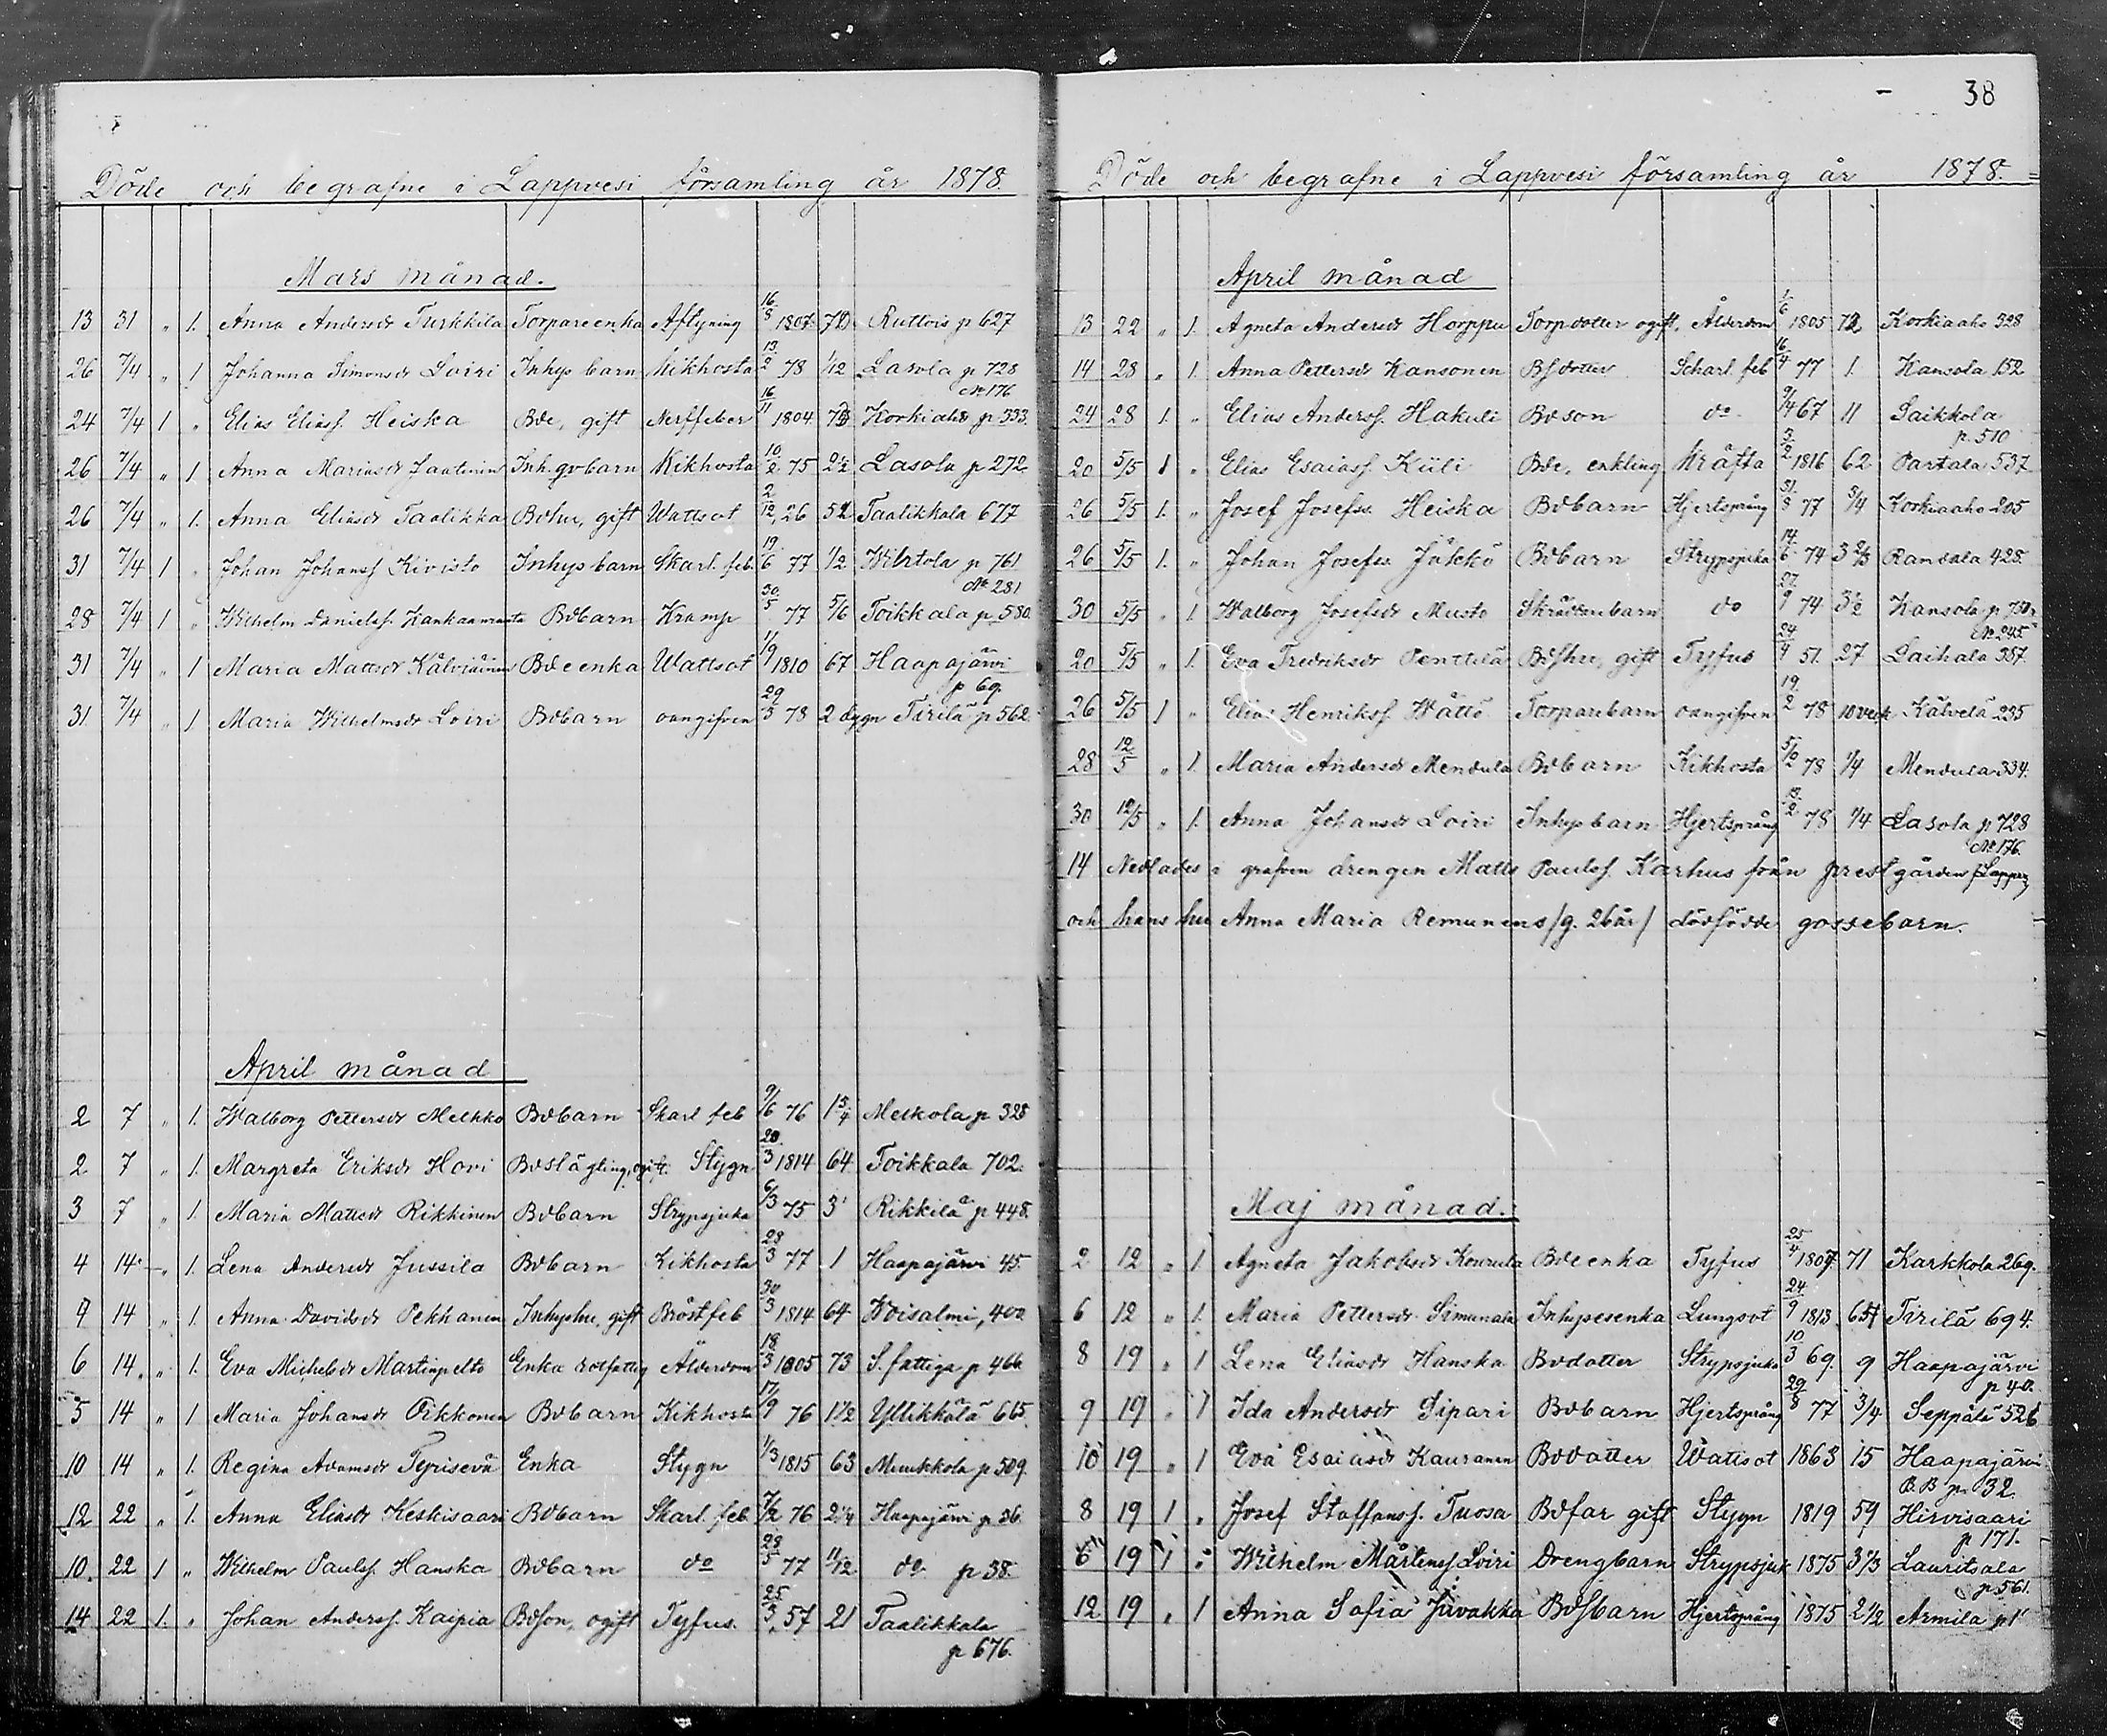 Döde och begrafne i Lappvesi församling år 1878.
Mars månad.
13 31 " 1. Anna Andersdr Turkkila Torpareenka Aftyning 16/8 1807 70 Ruttois p 627
26 7/4 " 1 Johanna Simonsdr Loiri Inhys barn Kikhosta 13/2 78 1/12 Lasola p 728
No 176
24 7/4 1 " Elias Eliass. Heiska Bde, gift Nerffeber 16/11 1804 73 Korkiaho p 333.
26 7/4 " 1 Anna Mariasdr Jaatinen Inh.gobarn Kikhosta 10/2 75 2 1/2 Lasola p 272
26 7/4 " 1. Anna Eliasdr Taalikka Bdhu, gift Wattsot 2/12 26 51 Taalikkala 677
31 7/4 1 " Johan Johanss Kivisto Inhys barn Skarl. feb. 19/6 77 1/2 Wihtola p 761
No 281
28 7/4 1 " Wilhelm Daniels. Kankaanranta Bdbarn Kramp 30/5 77 5/6 Toikkala p 580.
31 7/4 " 1 Maria Mattsdr Kälviäinen Bde enka Wattsot 1/9 1810 67 Haapajärvi
p 69.
31. 7/4 " 1 Maria Wilhelmsdr Loiri Bdbarn oangifven 29/3 78 2 dygn Tirilä p 562
April månad
2 7 " 1. Walborg Pettersdr Melkko Bdbarn Skarl feb 9/6 76 1 3/4 Melkola p 325
2 7 " 1. Margreta Eriksdr Hovi Bdslägting, ogift. Stygn 20/3 1814 64 Toikkala 702.
3 7 " 1. Maria Mattsdr Rikkinen Bdbarn Strypsjuka 6/3 75 3 Rikkilä p 448.
4 14 " 1. Lena Andersdr Jussila Bdbarn Kikhosta 28/3 77 1 Haapajärvi 45.
4 14 " 1. Anna Davidsdr Pekkanen Inhyshu, gift Bröstfeb 30/3 1814 64 Woisalmi, 400
6 14 " 1. Eva Michelsdr Martinpelto Enka rotfattig Ålderdom 18/3 1805 73 S. fattiga p 466
5 14 " 1 Maria Johansdr Pikkonen Bdbarn Kikhosta 17/9 76 1 1/2 Yllikkälä 615.
10 14 " 1. Regina Adamsdr Tyrisevä Enka Stygn 1/3 1815 63 Muukkola p 509.
12 22 " 1. Anna Eliasdr Keskisaari Bdbarn Skarl. feb 7/2 76 2 1/4 Haapajärvi p 36.
10. 22 1 " Wilhelm Pauls. Hanska Bdbarn do 28/5 77 11/12 do p 38.
14 22 1. " Johan Anderss. Kaipia Bdson, ogift Tyfus. 25/3 57 21 Taalikkala
p 676.
38
Döde och begrafne i Lappvesi församling år 1878.
April månad
13 22 " 1. Agneta Andersdr Horppu Torpdotter ogift, Ålderdom 1/6 1805 72 Korkiaaho 328
14 28 " 1. Anna Pettersdr Kansonen Bsdotter Scharl feb 16/4 77 1. Kansola 152
24 28 1. " Elias Anderss. Hakuli Bdson do 9/4 67 11 Saikkola
p. 510
20 5/5 1 " Elias Esaiass. Küli Bde, enkling Kräfta 3/2 1816 62 Partala 537
26 5/5 1. " Josef Josefss. Heiska Bdbarn Hjertsprång 31/3 77 5/4 Korkiaaho 205
26 5/5 1. " Johan Josefss. Jäkkö Bdbarn Strypsjuka 14/6 74 3 2/3 Randala 425.
30 5/5 " 1 Walborg Josefsdr Musto Skräddarebarn do 27/9 74 3 1/2 Kansola p
No 245
20 5/5 " 1. Eva Fredriksdr Penttilä Bdshu, gift Tyfus 24/4 51. 27 Laihala 357
26 5/5 1 " Elias Henrikss. Wättö Torparebarn oangifven 19/2 78 10 veck Kälvelä 235
28 12/5 " 1. Maria Andersdr Mendula Bdbarn Kikhosta 78 1/4 Mendula 334.
30 12/5 " 1. Anna Johansdr Loiri Inhys barn Hjertsprång 13/2 78 1/4 Lasola p 728
No 176.
14 Nedlades i grafven drengen Matts Paulss. Karhus från prestgården
och hans hu Anna Maria Remunens /g. 26 år/ dödfödde gossebarn.
Maj månad.
2 12 " 1 Agneta Jakobsdr Bde enka Tyfus 25/4 1807. 71 Karkkola 269.
6 12 " 1. Maria Pettersdr Simunala Inhysesenka Lungsot 24/9 1813 Tirilä 694.
8 19 " 1 Lena Eliasdr Hanska Bddotter Strypsjuka 10/3 69. 9 Haapajärvi
p 40.
9 19 " 1 Ida Andersdr Sipari Bdbarn Hjertsprång 29/8 77 3/4 Seppälä 526
10 19 " 1 Eva Esaiasdr Kauranen Bddotter Wattsot 1863 15 Haapajärvi
B.B p. 32.
8 19 1 " Josef Staffanss. Tuosa Bdfar gift Stygn 1819 59 Hirvisaari
p 171.
6 19 1 " Wilhelm Mårtenss. Loiri Drengbarn Strypsjuk 1875 3 1/3 Lauritsala
p 561.
12 19 " 1 Anna Sofia Juvakka Bdsbarn Hjertsprång 1875 2 1/2 Armila p 1